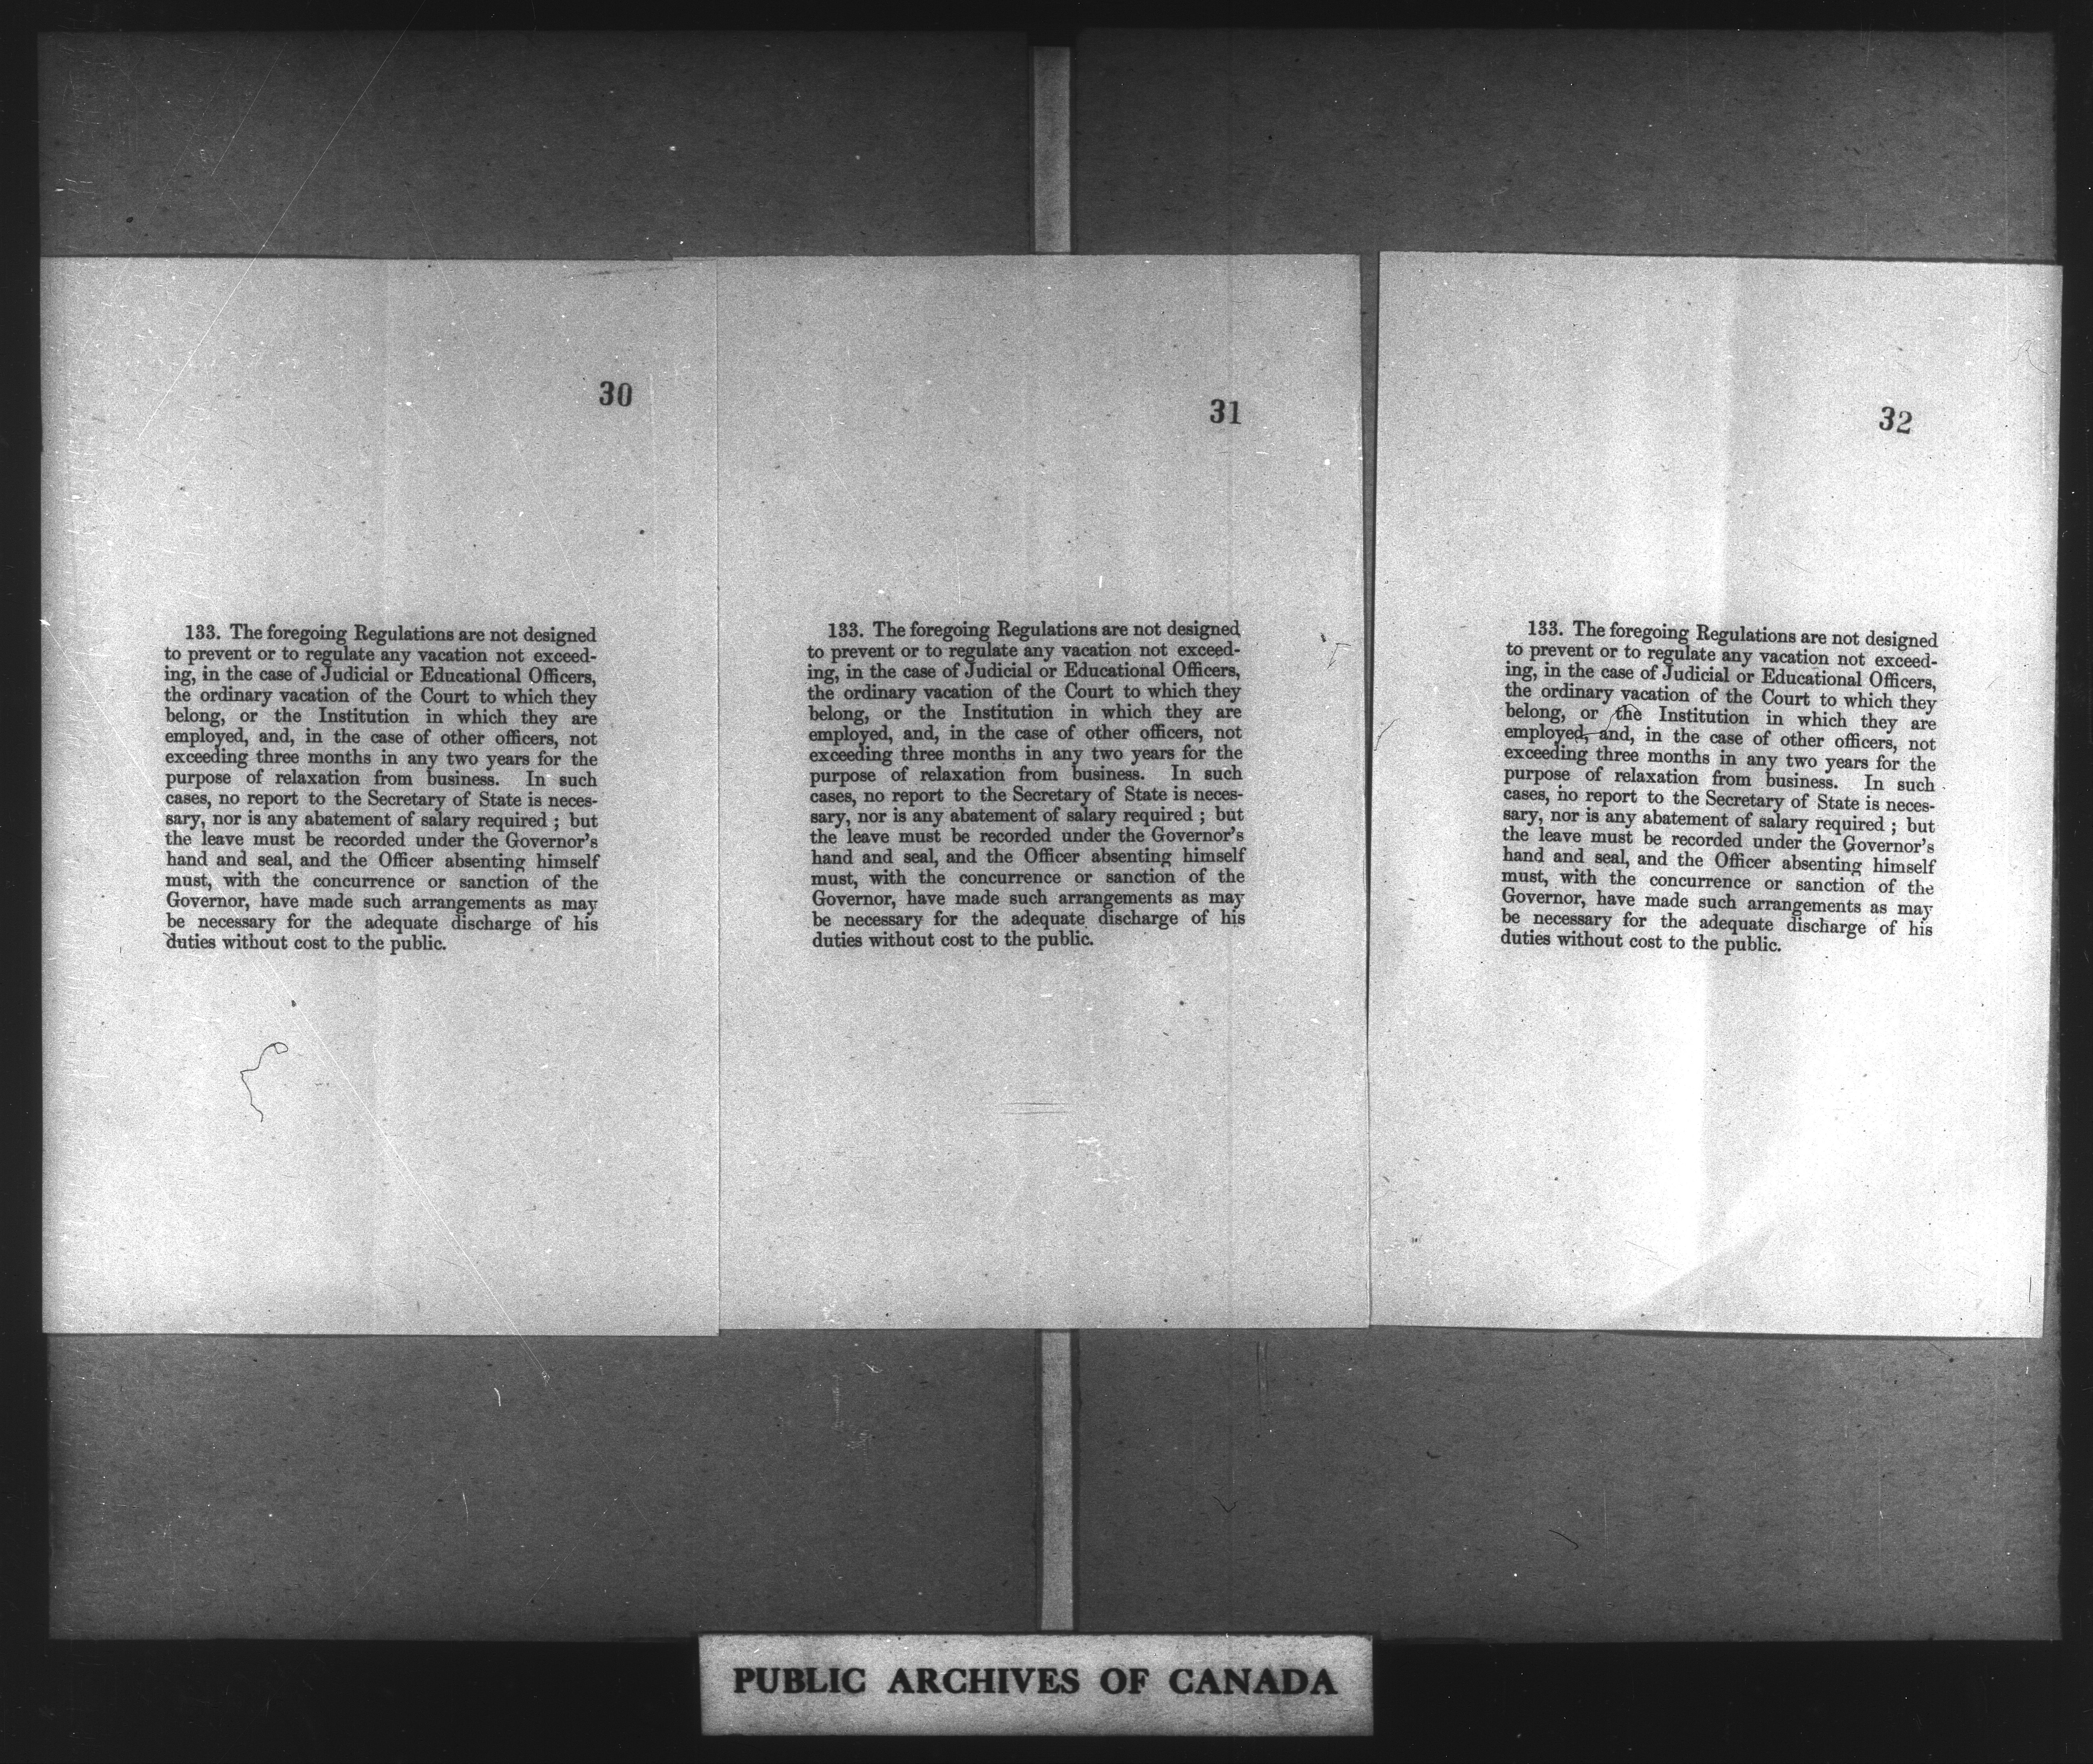 30
133. The foregoing Regulations are not designed
to prevent or to regulate any vacation not exceed-
ing, in the case of Judicial or Educational Officers,
the ordinary vacation of the Court to which they
belong, or the Institution in which they are
employed, and, in the case of other officers, not
exceeding three months in any two years for the
purpose of relaxation from business. In such
cases, no report to the Secretary of State is neces-
sary, nor is any abatement of salary required ; but
the leave must be recorded under the Governor's
hand and seal, and the Officer absenting himself
must, with the concurrence or sanction of the
Governor, have made such arrangements as may
be necessary for the adequate discharge of his
duties without cost to the public.
31
133. The foregoing Regulations are not designed
to prevent or to regulate any vacation not exceed-
ing, in the case of Judicial or Educational Officers,
the ordinary vacation of the Court to which they
belong, or the Institution in which they are
employed, and, in the case of other officers, not
exceeding three months in any two years for the
purpose of relaxation from business. In such
cases, no report to the Secretary of State is neces-
sary, nor is any abatement of salary required ; but
the leave must be recorded under the Governor's
hand and seal, and the Officer absenting himself
must, with the concurrence or sanction of the
Governor, have made such arrangements as may
be necessary for the adequate discharge of his
duties without cost to the public.
32
133. The foregoing Regulations are not designed
to prevent or to regulate any vacation not exceed-
ing, in the case of Judicial or Educational Officers,
the ordinary vacation of the Court to which they
belong, or the Institution in which they are
employed, and, in the case of other officers, not
exceeding three months in any two years for the
purpose of relaxation from business. In such
cases, no report to the Secretary of State is neces-
sary, nor is any abatement of salary required ; but
the leave must be recorded under the Governor's
hand and seal, and the Officer absenting himself
must, with the concurrence or sanction of the
Governor, have made such arrangements as may
be necessary for the adequate discharge of his
duties without cost to the public.
PUBLIC ARCHIVES OF CANADA